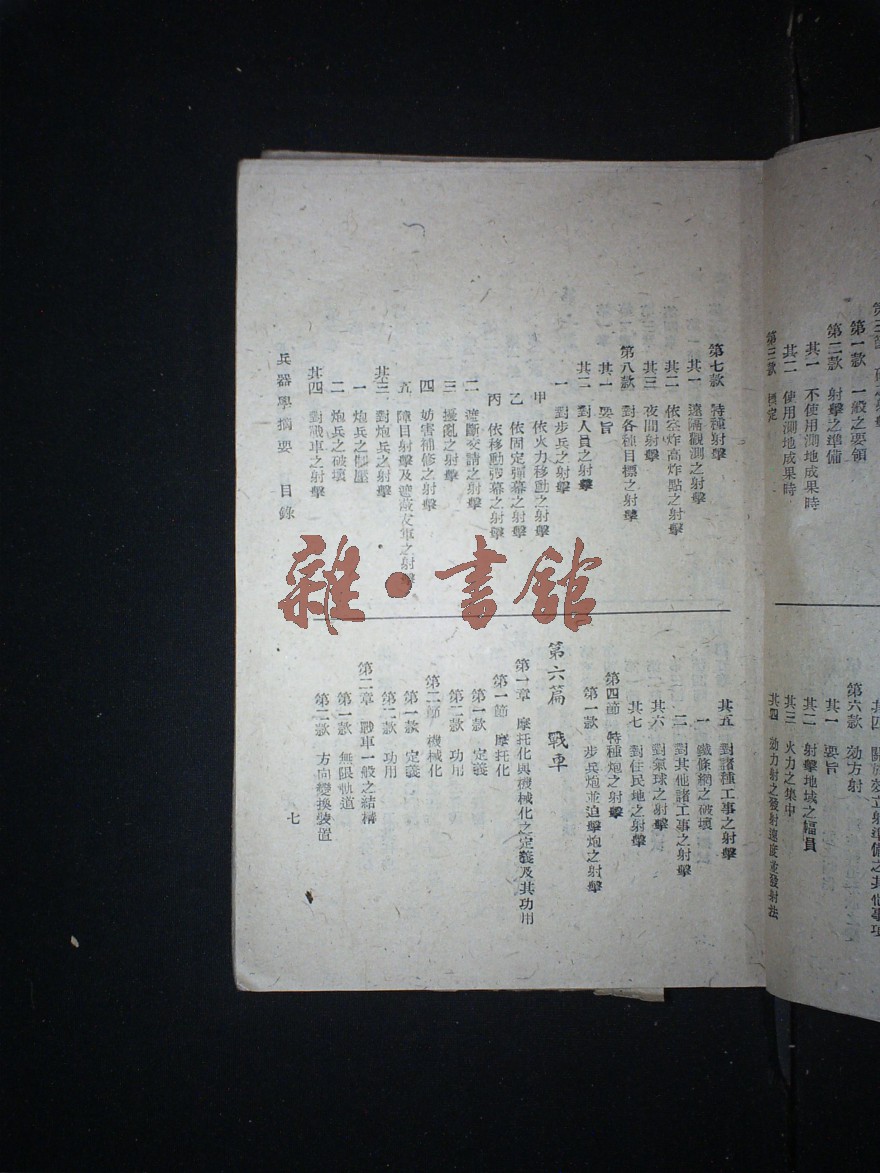 第一款　一般之要領
第二款　射擊之準備
其一　不使用測地成果時
其二　使用測地成果時
第三款　標定
第六款　効力射
其一　要旨
其二　射擊地域之幅員
其三　火力之集中
其四　効力射之發射速度並發射法
第七款　特種射擊
其一　遠隔觀測之射擊
其二　依空炸高炸點之射擊
其三　夜間射擊
第八款　對各種目標之射擊
其一　要旨
其二　對人員之射擊
一　對步兵之射擊
甲　依火力移動之射擊
乙　依固定彈幕之射擊
丙　依移動彈幕之射擊
二　遮斷交請之射擊
三　擾亂之射擊
四　妨害補修之射擊
五　障目射擊及遮蔽友軍之射擊
其三　對炮兵之射擊
一　炮兵之制壓
二　炮兵之破壞
其四　對戰車之射擊
其五　對諸種工事之射擊
一　鐵條網之破壞
二　對其他諸工事之射擊
其六　對氣球之射擊
其七　對住民地之射擊
第四節　特種炮之射擊
第一款　步兵炮並迫擊炮之射擊
第六篇　戰車
第一章　摩托化與機械化之定義及其功用
第一節　摩托化
第一款　定義
第二款　功用
第二節　機械化
第一款　定義
第二款　功用
第二章　戰車一般之結構
第一款　無限軌道
第二款　方向變換裝置
兵器學摘要　目錄
七
雜·書館